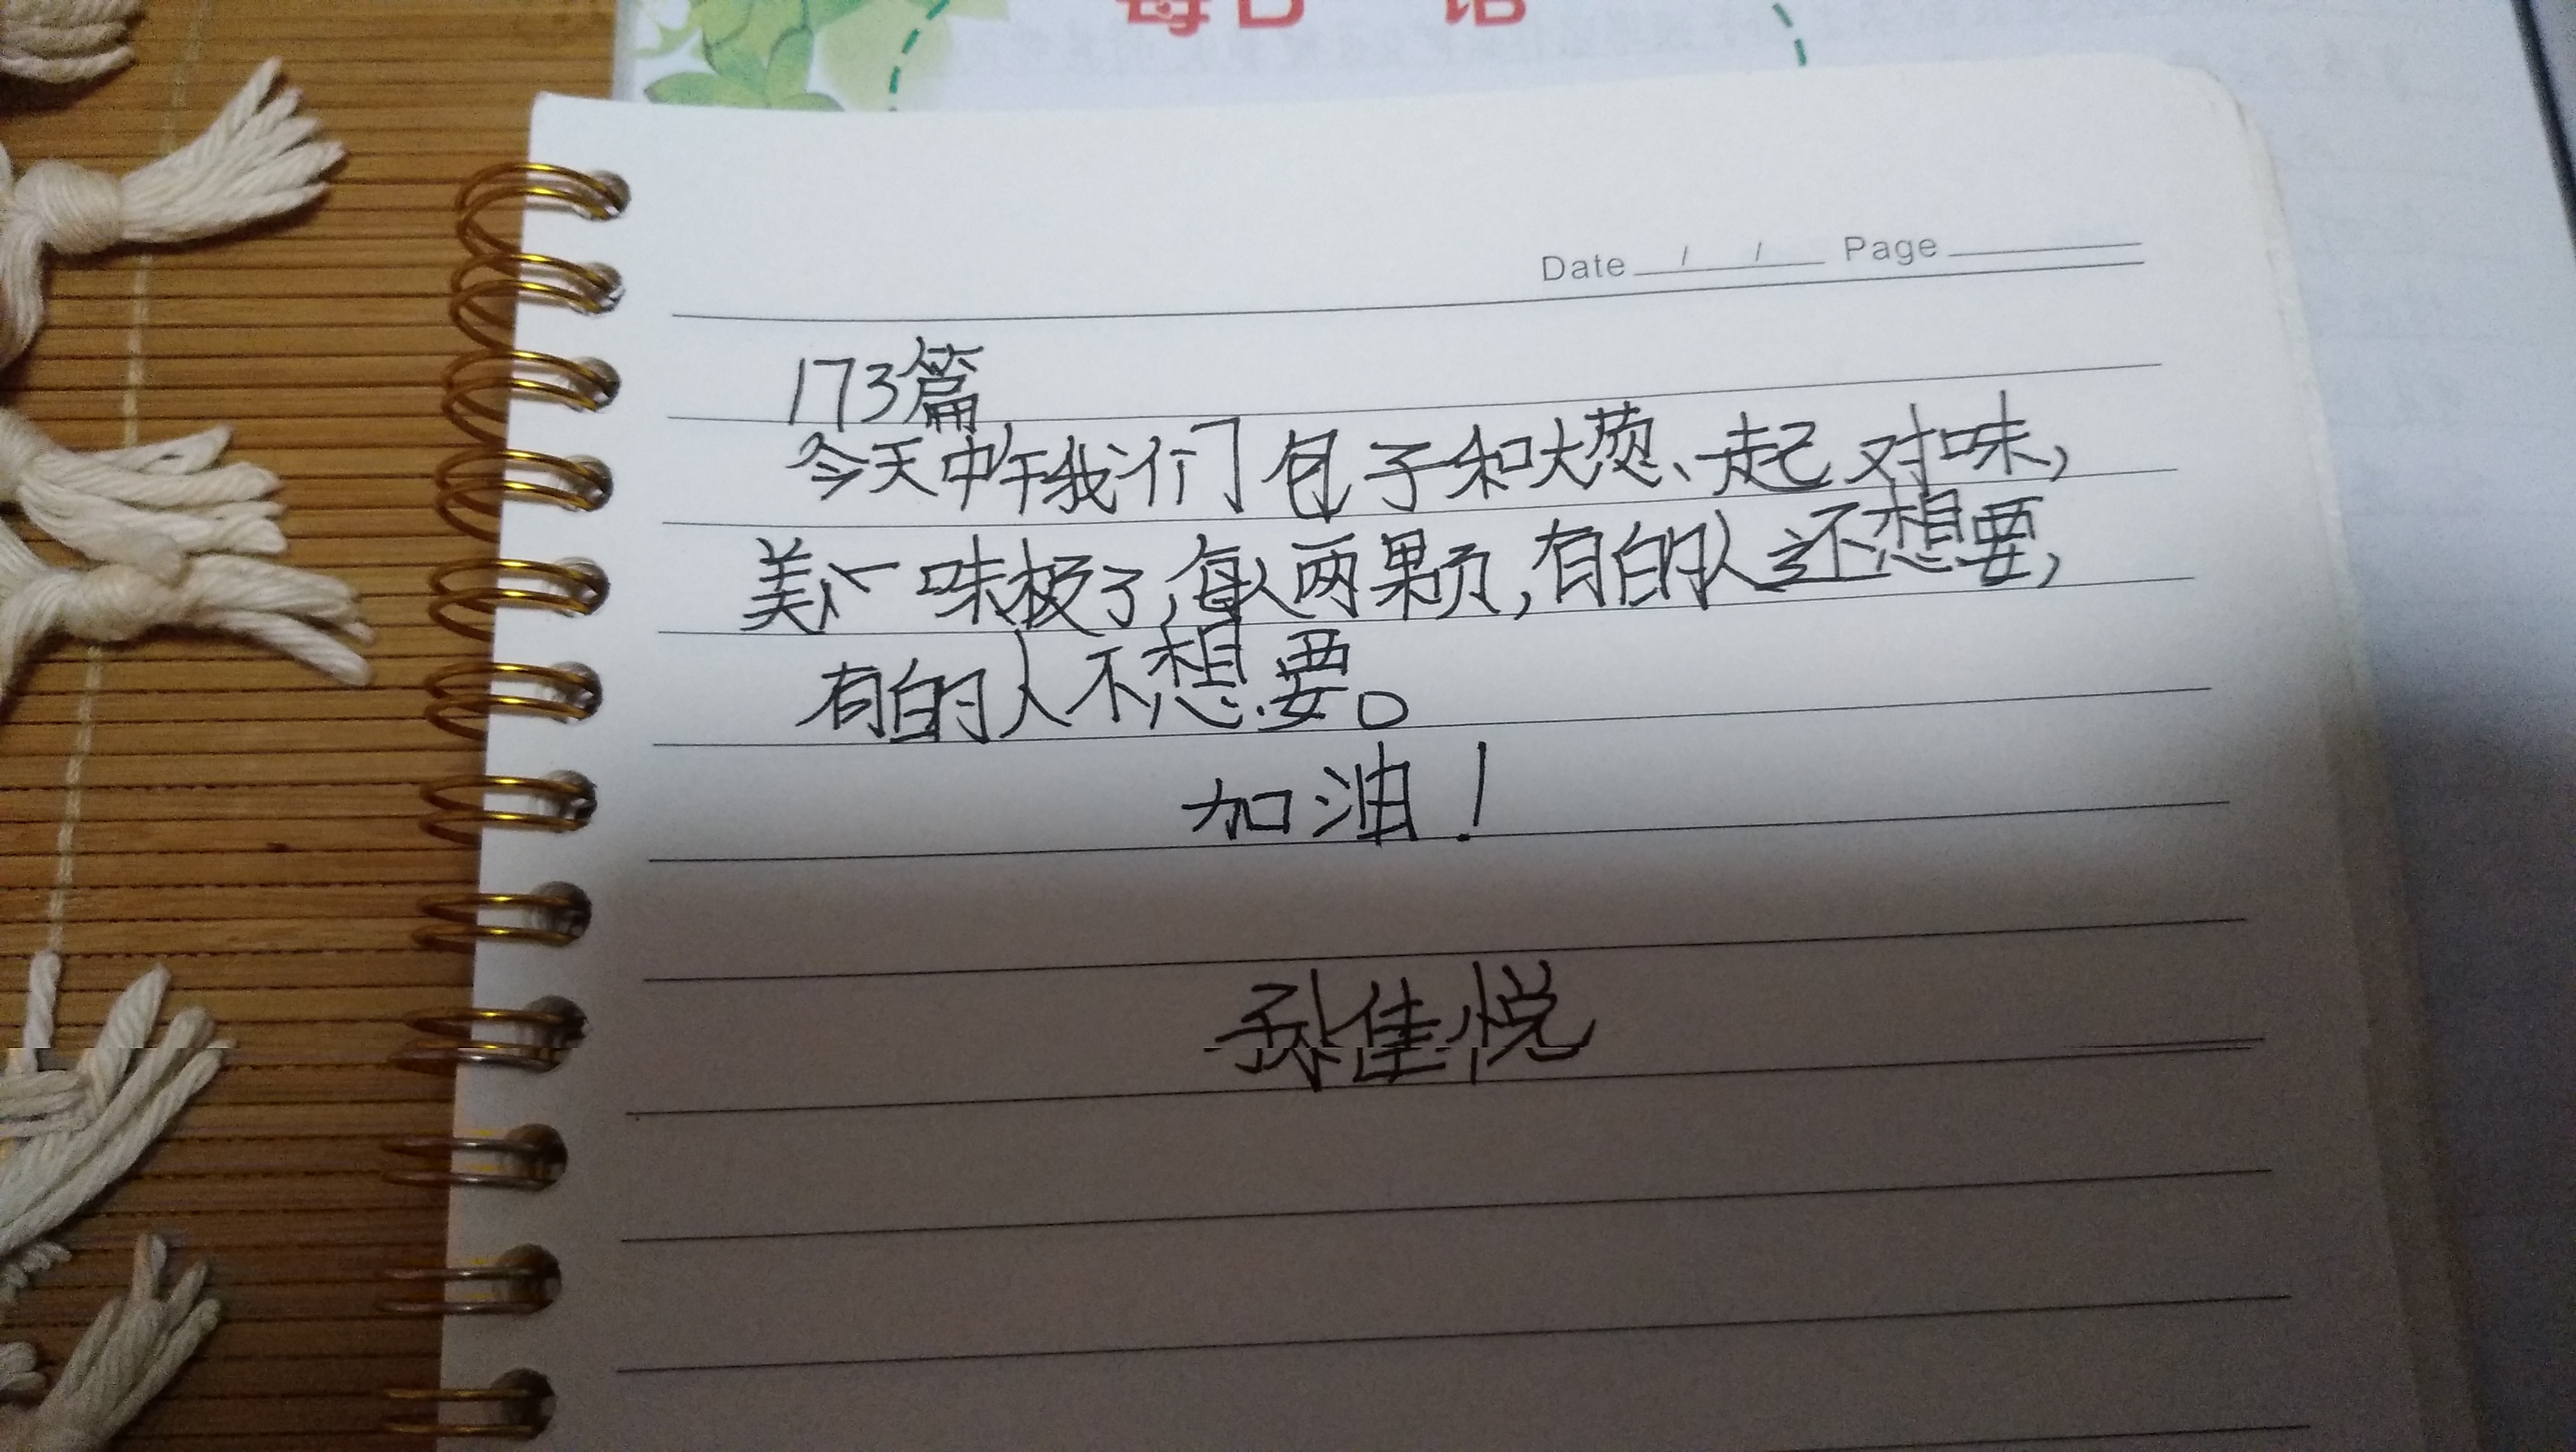 每日一语
Date / / Page
173篇
今天中午我们包子和大葱、一起对味,
美味极了,每人两颗,有的人还想要,
有的人不想要。
加油!
孙佳悦